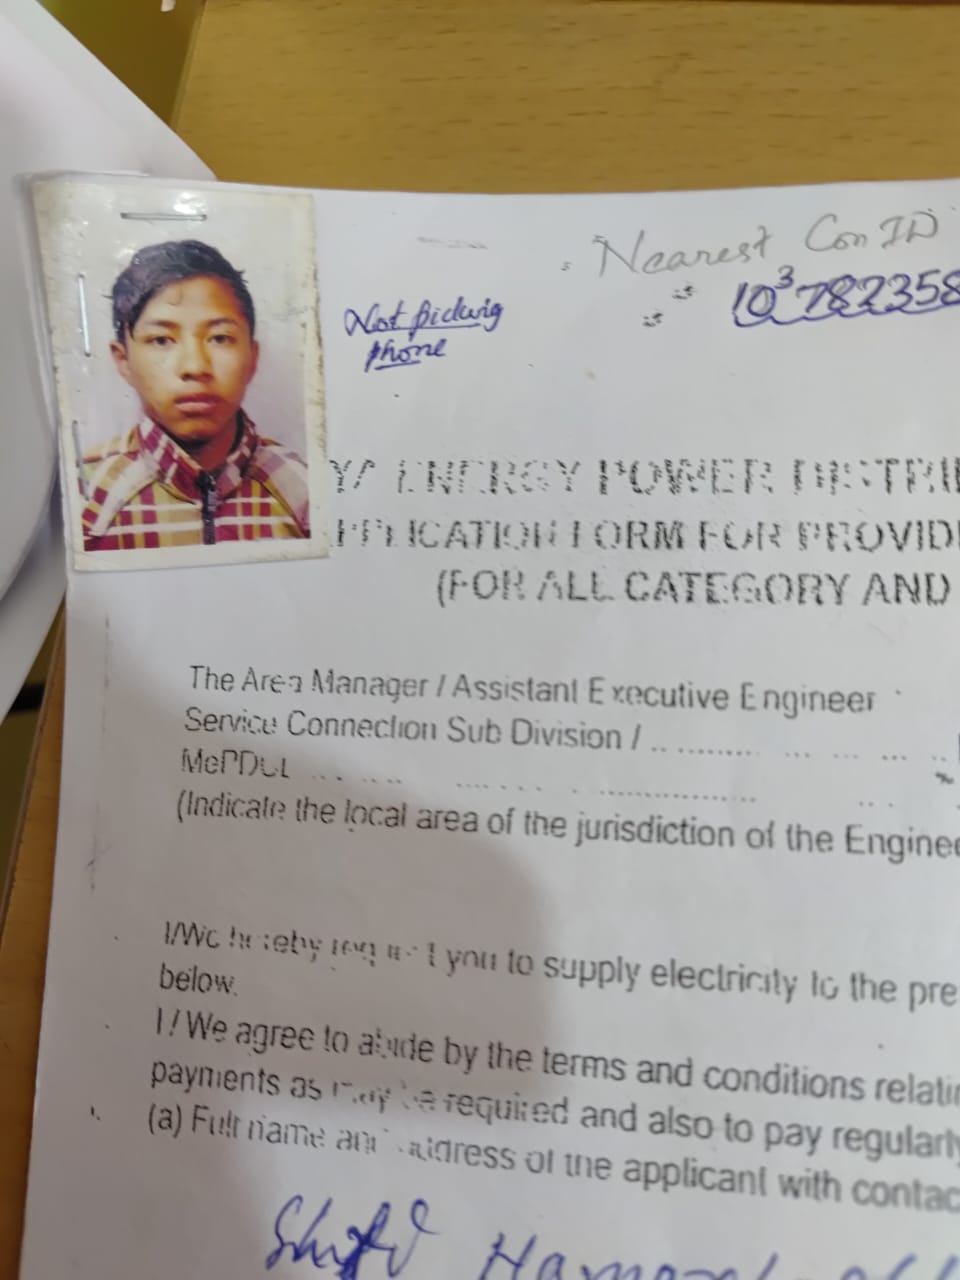 Nearest Con ID
10³782358
Not picking
phone
Y ENERGY POWER DISTRI
PPLICATION FORM FOR PROVIDI
(FOR ALL CATEGORY AND
The Area Manager / Assistant Executive Engineer
Service Connection Sub Division / .. ......... ... ... ... ..
MePDCL ... .. .. .... . . . .............. .. .
(Indicate the local area of the jurisdiction of the Enginee
I/We hereby request you to supply electricity to the pre
below.
I / We agree to abide by the terms and conditions relatin
payments as may be required and also to pay regularly
(a) Full name and address of the applicant with contac